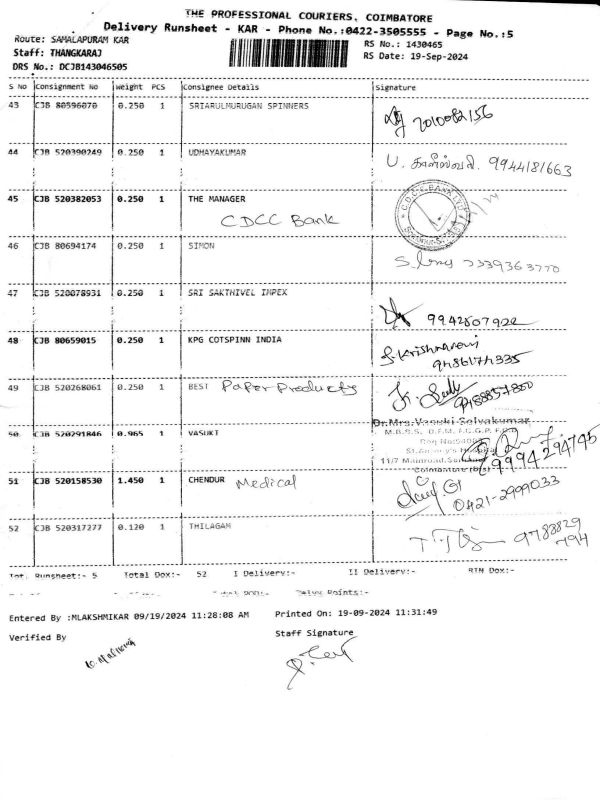 THE PROFESSIONAL COURIERS, COIMBATORE
Delivery Runsheet - KAR - Phone No.:0422-3505555 - Page No.:5
Route: SAMALAPURAM KAR
RS No.: 1430465
Staff: THANGKARAJ
RS Date: 19-Sep-2024
DRS No.: DCJB143046505
S No Consignment No Weight PCS Consignee Details Signature
43 CJB 80596070 0.250 1 SRIARULMURUGAN SPINNERS
44 CJB 520390249 0.250 1 UDHAYAKUMAR U. 9944181663
45 CJB 520382053 0.250 1 THE MANAGER
CDCC Bank
46 CJB 80694174 0.250 1 SIMON
7339363770
47 CJB 520078931 0.250 1 SRI SAKTHIVEL IMPEX
48 CJB 80659015 0.250 1 KPG COTSPINN INDIA
49 CJB 520268061 0.250 1 BEST Paper Products
Dr.Mrs.Vasuki Selvakumar
50 CJB 520291846 0.965 1 VASUKI
9994294795
51 CJB 520158530 1.450 1 CHENDUR Medical
0421-2999033
52 CJB 520317277 0.120 1 THILAGAM
9788829
794
Tot. Runsheet:- 5 Total Dox:- 52 I Delivery:- II Delivery:- RTN Dox:-
Entered By :MLAKSHMIKAR 09/19/2024 11:28:08 AM Printed On: 19-09-2024 11:31:49
Verified By Staff Signature